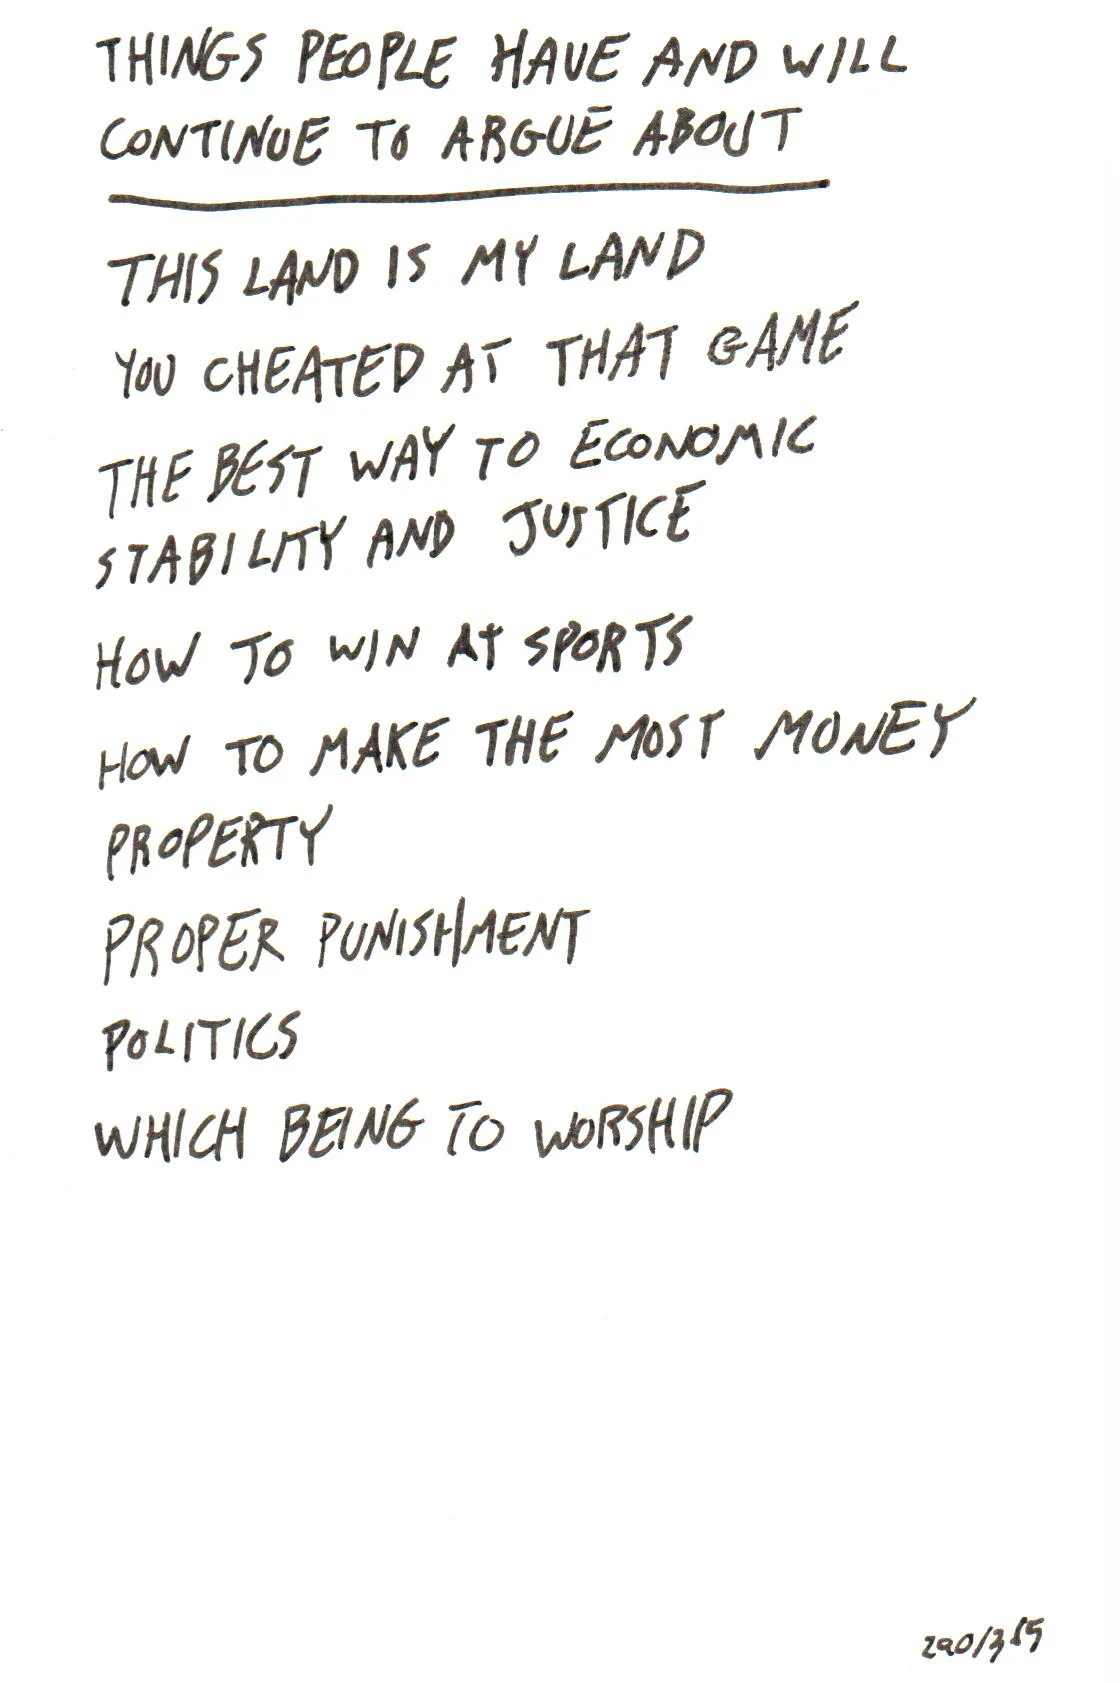 THINGS PEOPLE HAVE AND WILL
CONTINUE TO ARGUE ABOUT
THIS LAND IS MY LAND
YOU CHEATED AT THAT GAME
THE BEST WAY TO ECONOMIC
STABILITY AND JUSTICE
HOW TO WIN AT SPORTS
HOW TO MAKE THE MOST MONEY
PROPERTY
PROPER PUNISHMENT
POLITICS
WHICH BEING TO WORSHIP